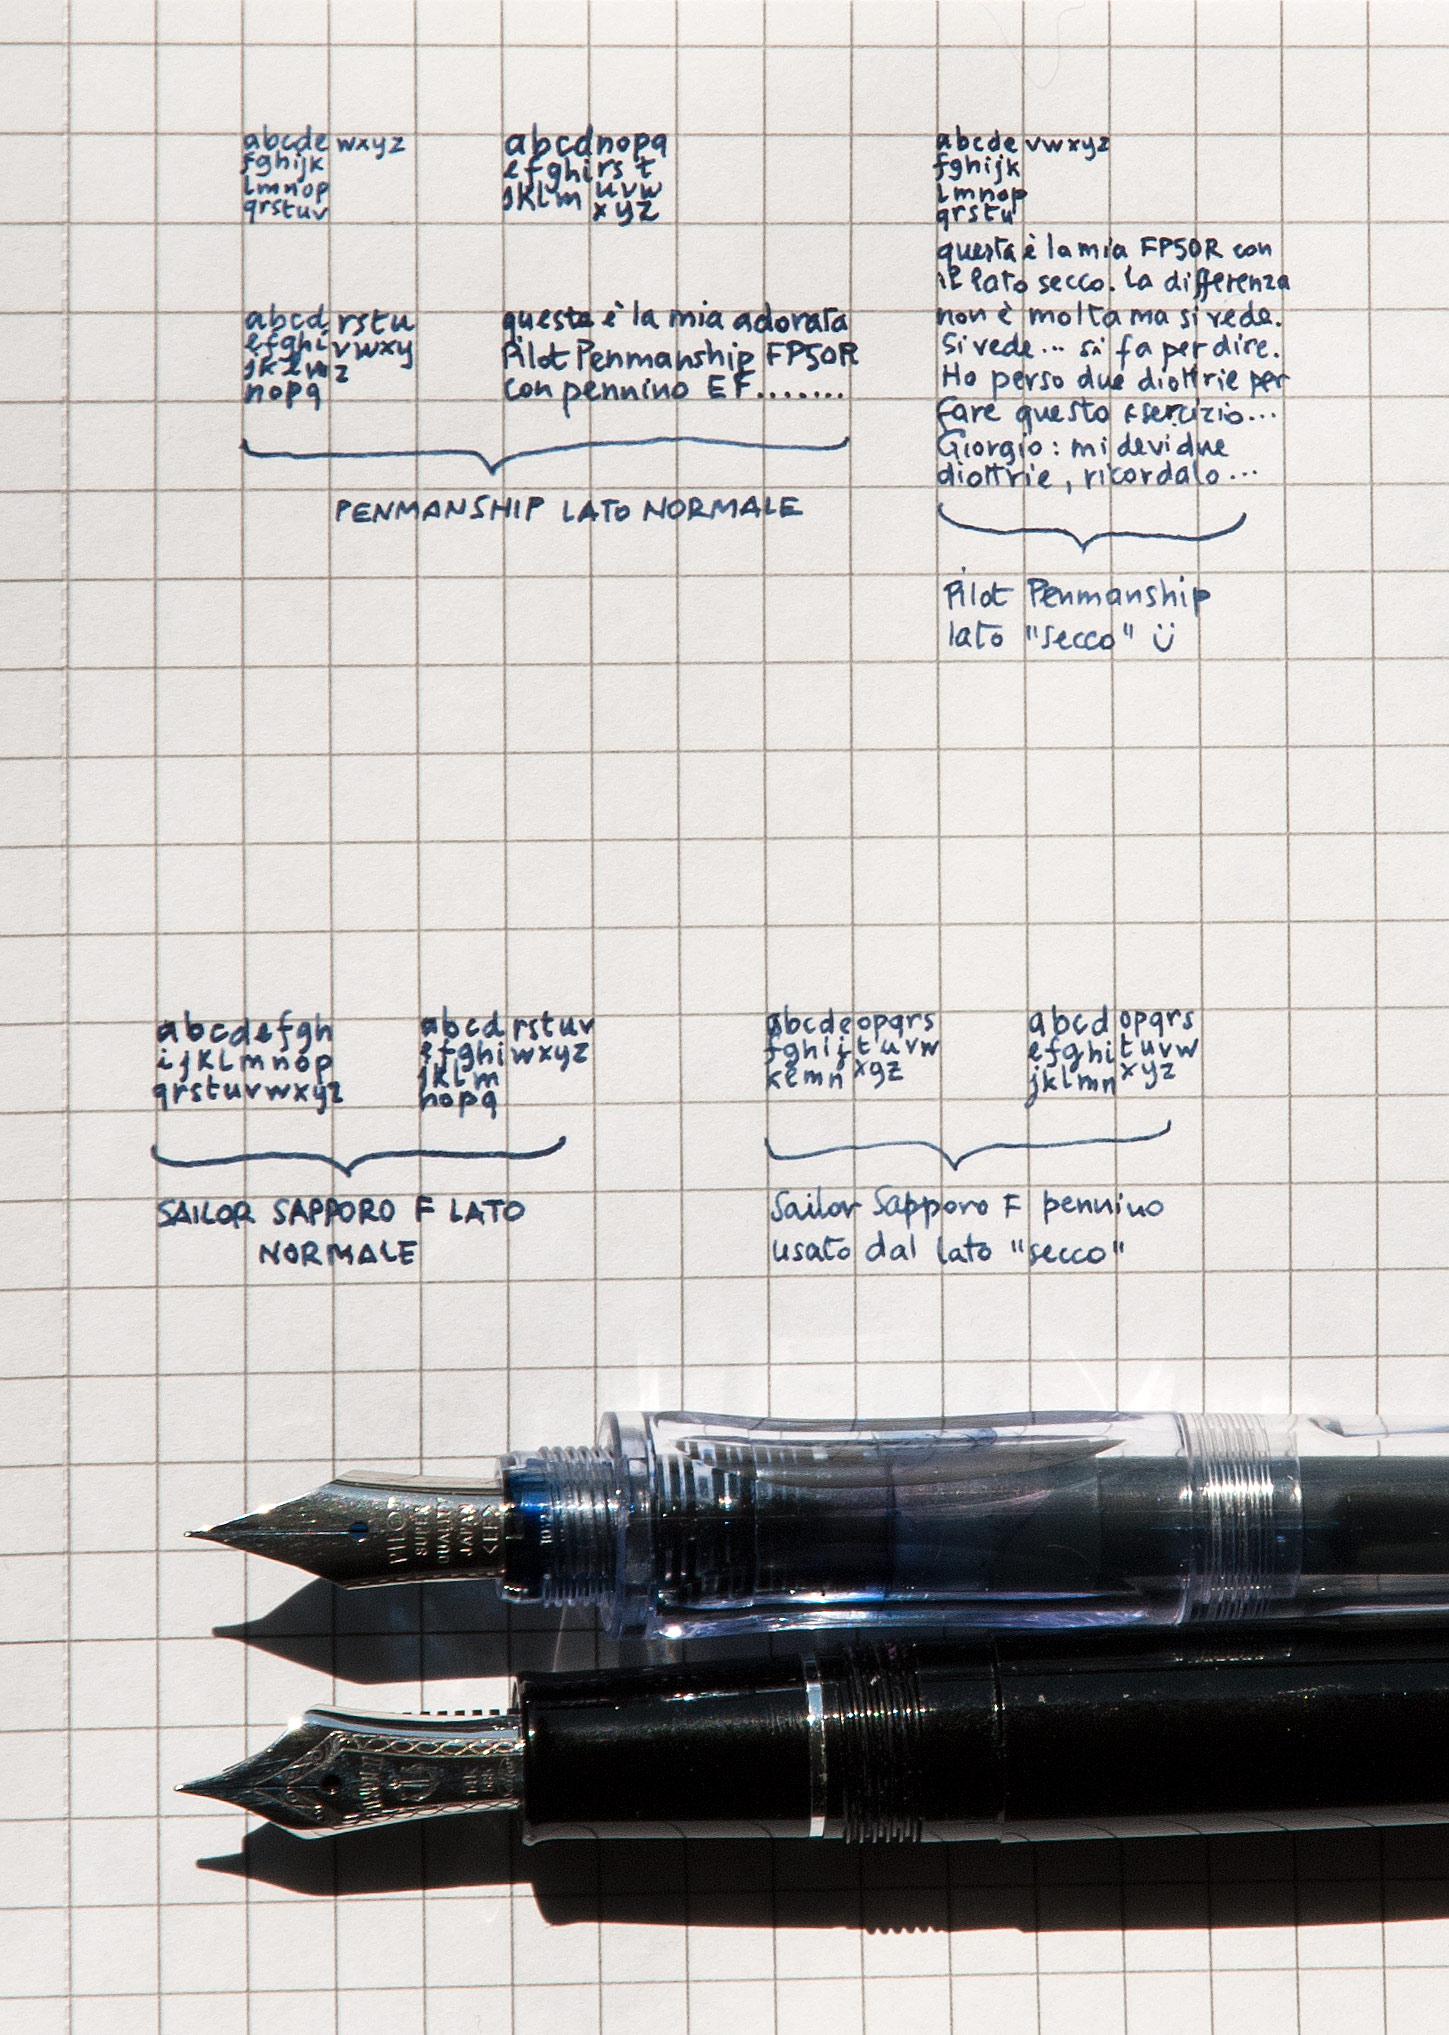 abcde wxyz
fghijk
lmnop
qrstuv
abcdnopq
efghirs t
jklm uvw
xyz
abcd rstu
efghi vwxy
jklm z
nopq
questa è la mia adorata
Pilot Penmanship FP50R
con pennino EF.......
PENMANSHIP LATO NORMALE
abcde vwxyz
fghijk
lmnop
qrstu
questa è la mia FP50R con
il lato secco. La differenza
non è molta ma si vede.
Si vede... si fa per dire.
Ho perso due diottrie per
fare questo esercizio...
Giorgio: mi devi due
diottrie, ricordalo...
Pilot Penmanship
lato "secco" ü
abcdefgh
ijklmnop
qrstuvwxyz
abcd rstuv
efghi wxyz
jklm
nopq
SAILOR SAPPORO F LATO
NORMALE
abcde opqrs
fghij tuvw
klmn xyz
abcd opqrs
efghi tuvw
jklmn xyz
Sailor Sapporo F pennino
usato dal lato "secco"
PILOT
SUPER
QUALITY
JAPAN